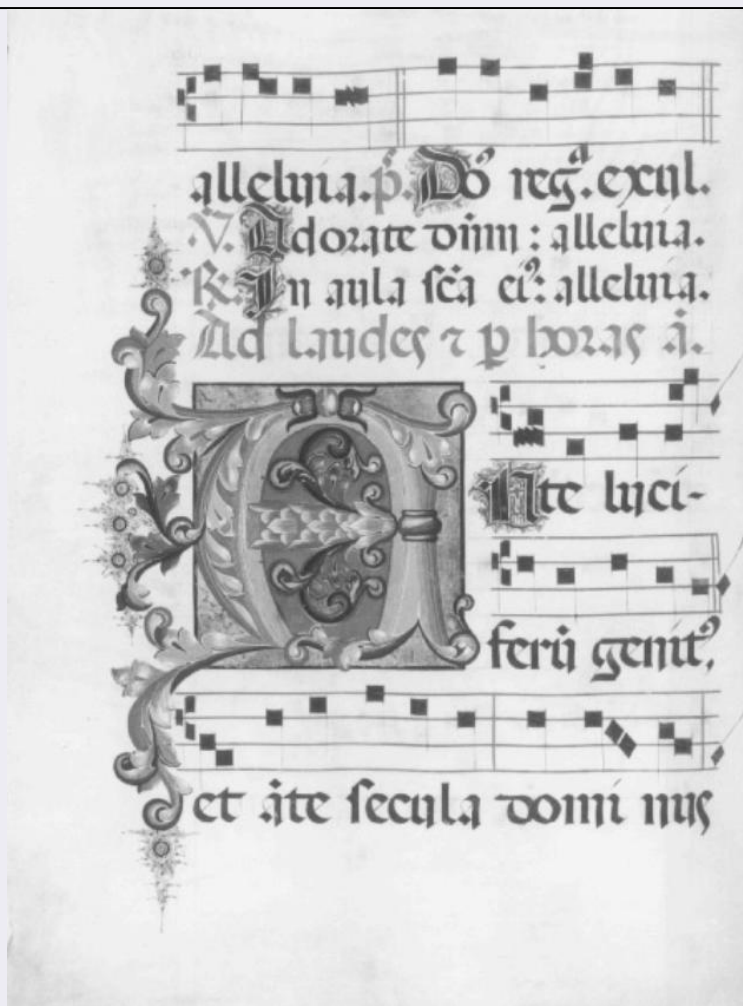 alleluia. p̄. Dn̄s reg.ª exul.
V. Adorate dn̄m : alleluia.
R. In aula sc̄a eiꝰ: alleluia.
Ad laudes ⁊ ꝑ horas a͞n.
Ante luci-
ferū genitꝰ,
et āte secula domi nus